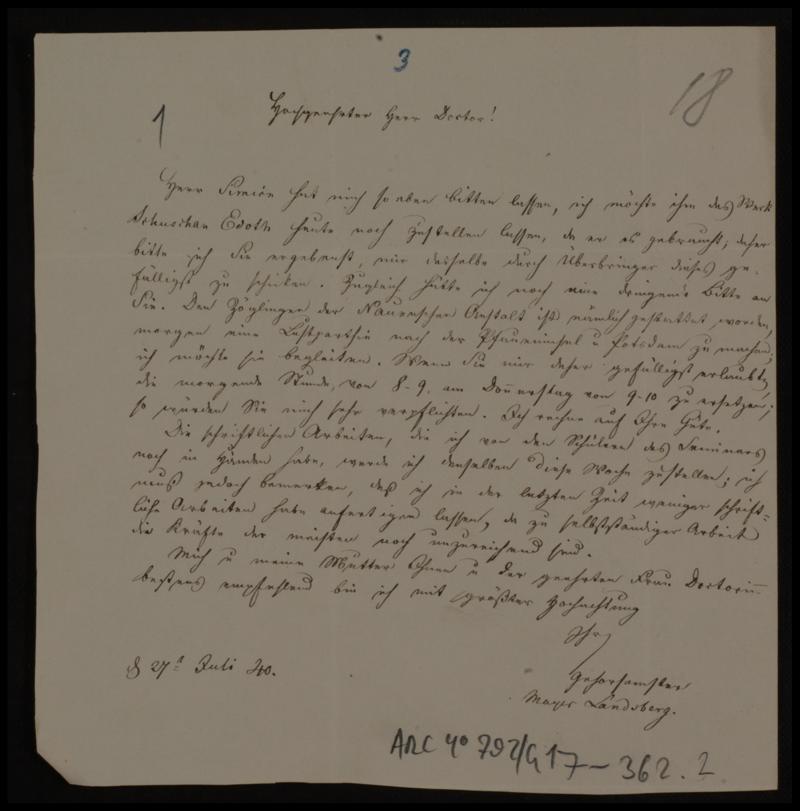 3
18
1
Hochgeehrter Herr Doctor!
Herr Simion hat mich so eben bitten lassen, ich möchte ihm das Werk
Schuschan Edoth heute noch zustellen lassen, da er es gebraucht; daher
bitte ich Sie ergebenst, mir dasselbe durch Überbringer dieses ge-
fälligst zu schicken. Zugleich hätte ich noch eine dringende Bitte an
Sie. Den Zöglingen der Nauenschen Anstalt ist nämlich gestattet worden,
morgen eine Lustparthie nach der Pfaueninsel u Potsdam zu machen;
ich möchte sie begleiten. Wenn Sie mir daher gefälligst erlaubten
die morgende Stunde, von 8-9, am Donnerstag von 9-10 zu ersetzen;
so würden Sie mich sehr verpflichten. Ich rechne auf Ihre Güte.
Die schriftlichen Arbeiten, die ich von den Schülern des Seminars
noch in Händen habe, werde ich denselben diese Woche zustellen; ich
muß jedoch bemerken, daß ich in der letzten Zeit weniger schrift=
liche Arbeiten habe anfertigen lassen, da zu selbstständiger Arbeit
die Kräfte der meisten noch unzureichend sind.
Mich u meine Mutter Ihnen u der geehrten Frau Doctorin
bestens empfehlend bin ich mit größter Hochachtung
Ihr
gehorsamster
Mayer Landsberg.
27t Juli 40.
ARC 4o 792/G17-362.2